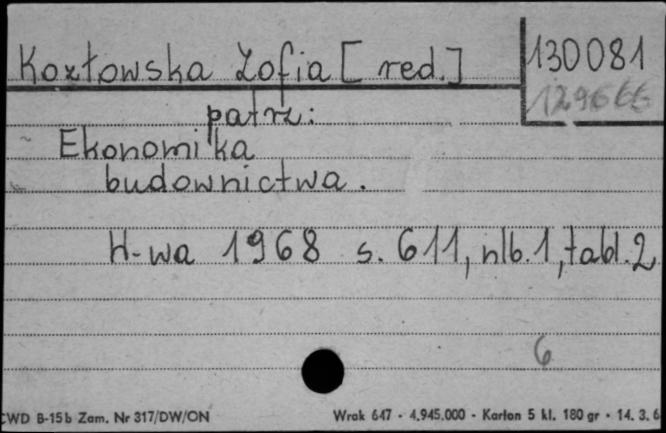 Kozłowska Zofia [red.]
130081
129666
patrz:
Ekonomika
budownictwa.
W-wa 1968 s. 611, nlb. 1, tabl. 2
6
CWD B-15b Zam. Nr 317/DW/ON
Wrak 647 - 4.945.000 - Karton 5 kl. 180 gr - 14. 3. 6